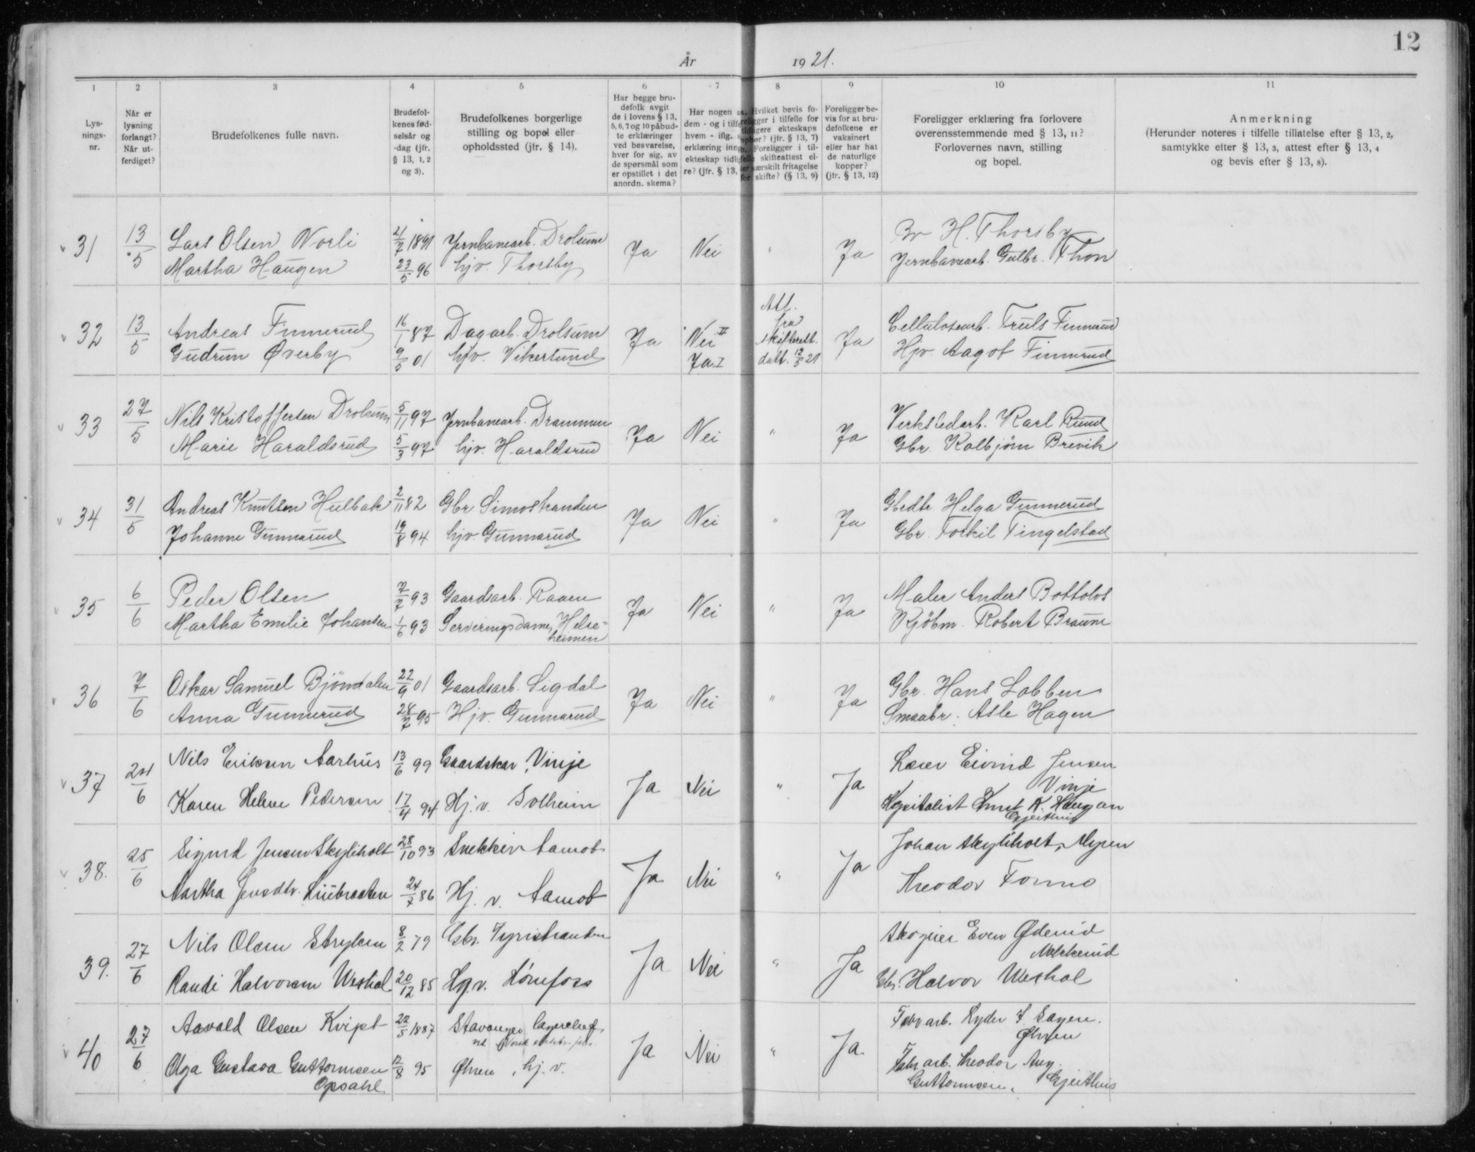 12
År 1921.
1 2 3 4 5 6 7 8 9 10 11
Lys-
nings-
nr.
Når er
lysning
forlangt?
Når ut-
ferdiget?
Brudefolkenes fulle navn.
Brudefol-
kenes fød-
selsår og
-dag (jfr.
§ 13, 1, 2
og 3).
Brudefolkenes borgerlige
stilling og bopel eller
opholdssted (jfr. § 14).
Har begge bru-
defolk avgit
de i lovens § 13,
5, 6, 7 og 10 påbud-
te erklæringer
ved besvarelse,
hver for sig, av
de spørsmål som
er opstillet i det
anordn. skema?
Har nogen
dem - og i tilf
hvem - iflg.
erklæring inng
ekteskap tidlig
re? (jfr. § 13,
Hvilket bevis fo-
religger i tilfelle for
tidligere ekteskaps
ophør? (jfr. § 13, 7)
Foreligger i til-
felle skifteattest el-
særskilt fritagelse
for skifte? (§ 13, 9)
Foreligger be-
vis for at bru-
defolkene er
vaksinert
eller har hat
de naturlige
kopper?
(jfr. § 13, 12)
Foreligger erklæring fra forlovere
overensstemmende med § 13, 11?
Forlovernes navn, stilling
og bopel.
Anmerkning
(Herunder noteres i tilfelle tillatelse efter § 13, 2,
samtykke efter § 13, 3, attest efter § 13, 4
og bevis efter § 13, 8).
31 13/5 Lars Olsen Norli 21/7 1891 Jernbanearb. Drolsum Ja Nei " Ja H. Thorsby
Martha Haugen 23/5 96 hjv. Thorsby Jernbanearb. Gulbr. Thon
32 13/5 Andreas Finnerud 16/1 87 Dagarb. Drolsum Ja Nei II Att. fra skifterett. Ja Cellulosearb. Truls Finnerud
Gudrun Øverby 9/5 01 hjv. Vikersund Ja I datt. 21 Hjv. Aagot Finnerud
33 27/5 Nils Kristoffersen Drolsum 5/11 97 Jernbanearb. Drammen Ja Nei " Ja Verkstedarb. Karl Ruud
Marie Haraldsrud 5/3 97 hjv. Haraldsrud Gbr. Kolbjørn Brevik
34 31/5 Andreas Knutsen Hulbak 2/11 82 Gbr. Simostranden Ja Nei " Ja Gbrdtr Helga Gunnerud
Johanne Gunnarud 19/8 94 hjv. Gunnarud Gbr. Torkil Tingelstad
35 6/6 Peder Olsen 7/7 93 Gaardsarb. Raaen Ja Nei " Ja Maler Anders Bottolvs
Martha Emilie Johansen 1/6 93 Serveringsdame, Helse-
heimen Kjøbm. Robert Braune
36 7/6 Oskar Samuel Bjørndalen 22/9 01 Gaardsarb. Sigdal Ja Nei " Ja Gbr. Hans Lobben
Anna Gunnerud 28/2 95 Hjv. Gunnarud Smaabr. Asle Hagen
37 24/6 Nils Eriksen Aarhus 13/6 99 Gaardskar, Vinje Ja Nei " Ja Lærer Eivind Jensen
Vinje
Karen Helene Pedersen 17/4 94 Hj. v. Solheim Knut K. Haugan
Gjeithus
38. 25/6 Sigurd Jensen Skyliholt 28/10 93 Snekker Aamot Ja Nei " Ja Johan Skyliholt, Mysen
Martha Jensdtr. Liubraaten 24/7 86 Hj. v. Aamot Theodor Formo
39. 27/6 Nils Olsen Strylien 8/2 79 Gbr. Tyristranden Ja Nei " Ja Even Øderud
Randi Halvorsen Ureshol 20/12 85 Hj. v. Hønefoss Gbr. Halvor Ureshol
40 27/6 Aavald Olsen Kvipt 22/5 1887 Stavanger, lagerchef Ja Nei " Ja Fabr.arb. Syder
Øhren
Olga Gustava Guttormsen
Opsahl 12/8 95 Øhren, hj. v. Fabr.arb. Theodor Aug.
Guttormsen, Gjeithus